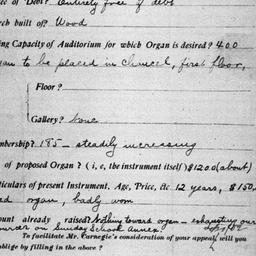 ee of Debt? Entirely free of debt
rch built of? Wood
ing Capacity of Auditorium for which Organ is desired? 400
an to be placed in chancel, first floor,
Floor?
Gallery? None
mbership? 185 — steadily increasing
of proposed Organ? (i, e, the instrument itself) $1200 (about)
ticulars of present Instrument. Age, Price, etc. 12 years, $150.
ed organ, badly worn
ount already raised? Nothing toward organ — exhausting our
on Sunday School Annex
To facilitate Mr. Carnegie's consideration of your appeal, will you
oblige by filling in the above?